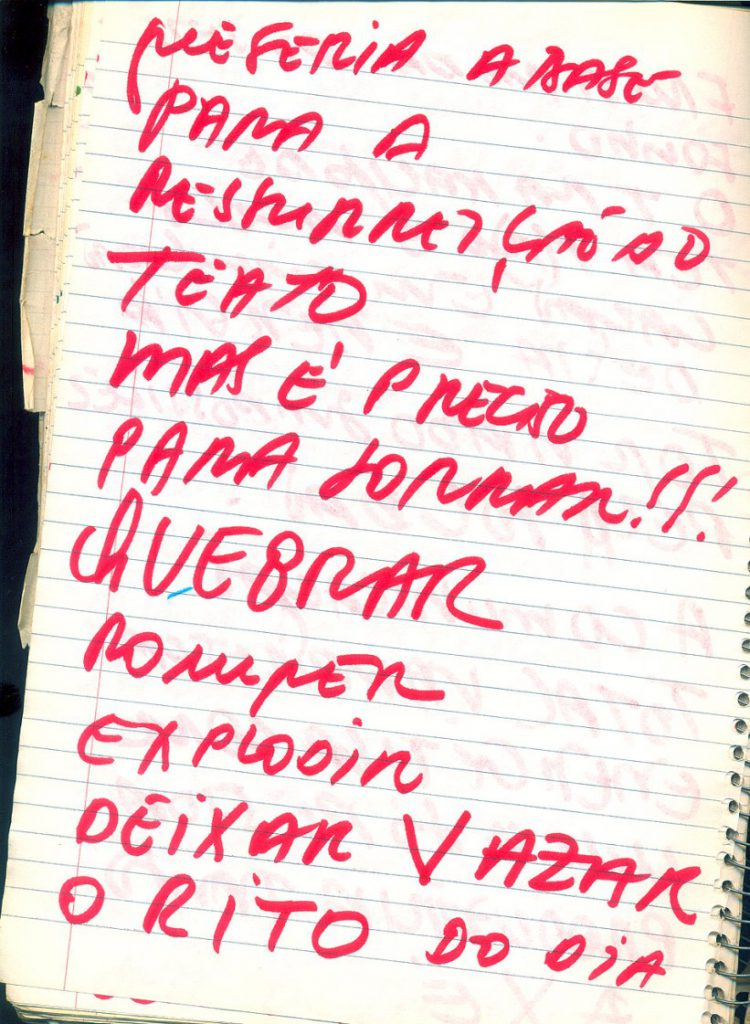 A BASE
PARA A
RESSURREIÇÃO DO
TEATO
MAS É PRECISO
PARA JORRAR!!!
QUEBRAR
ROMPER
EXPLODIR
DEIXAR VAZAR
O RITO DO DIA